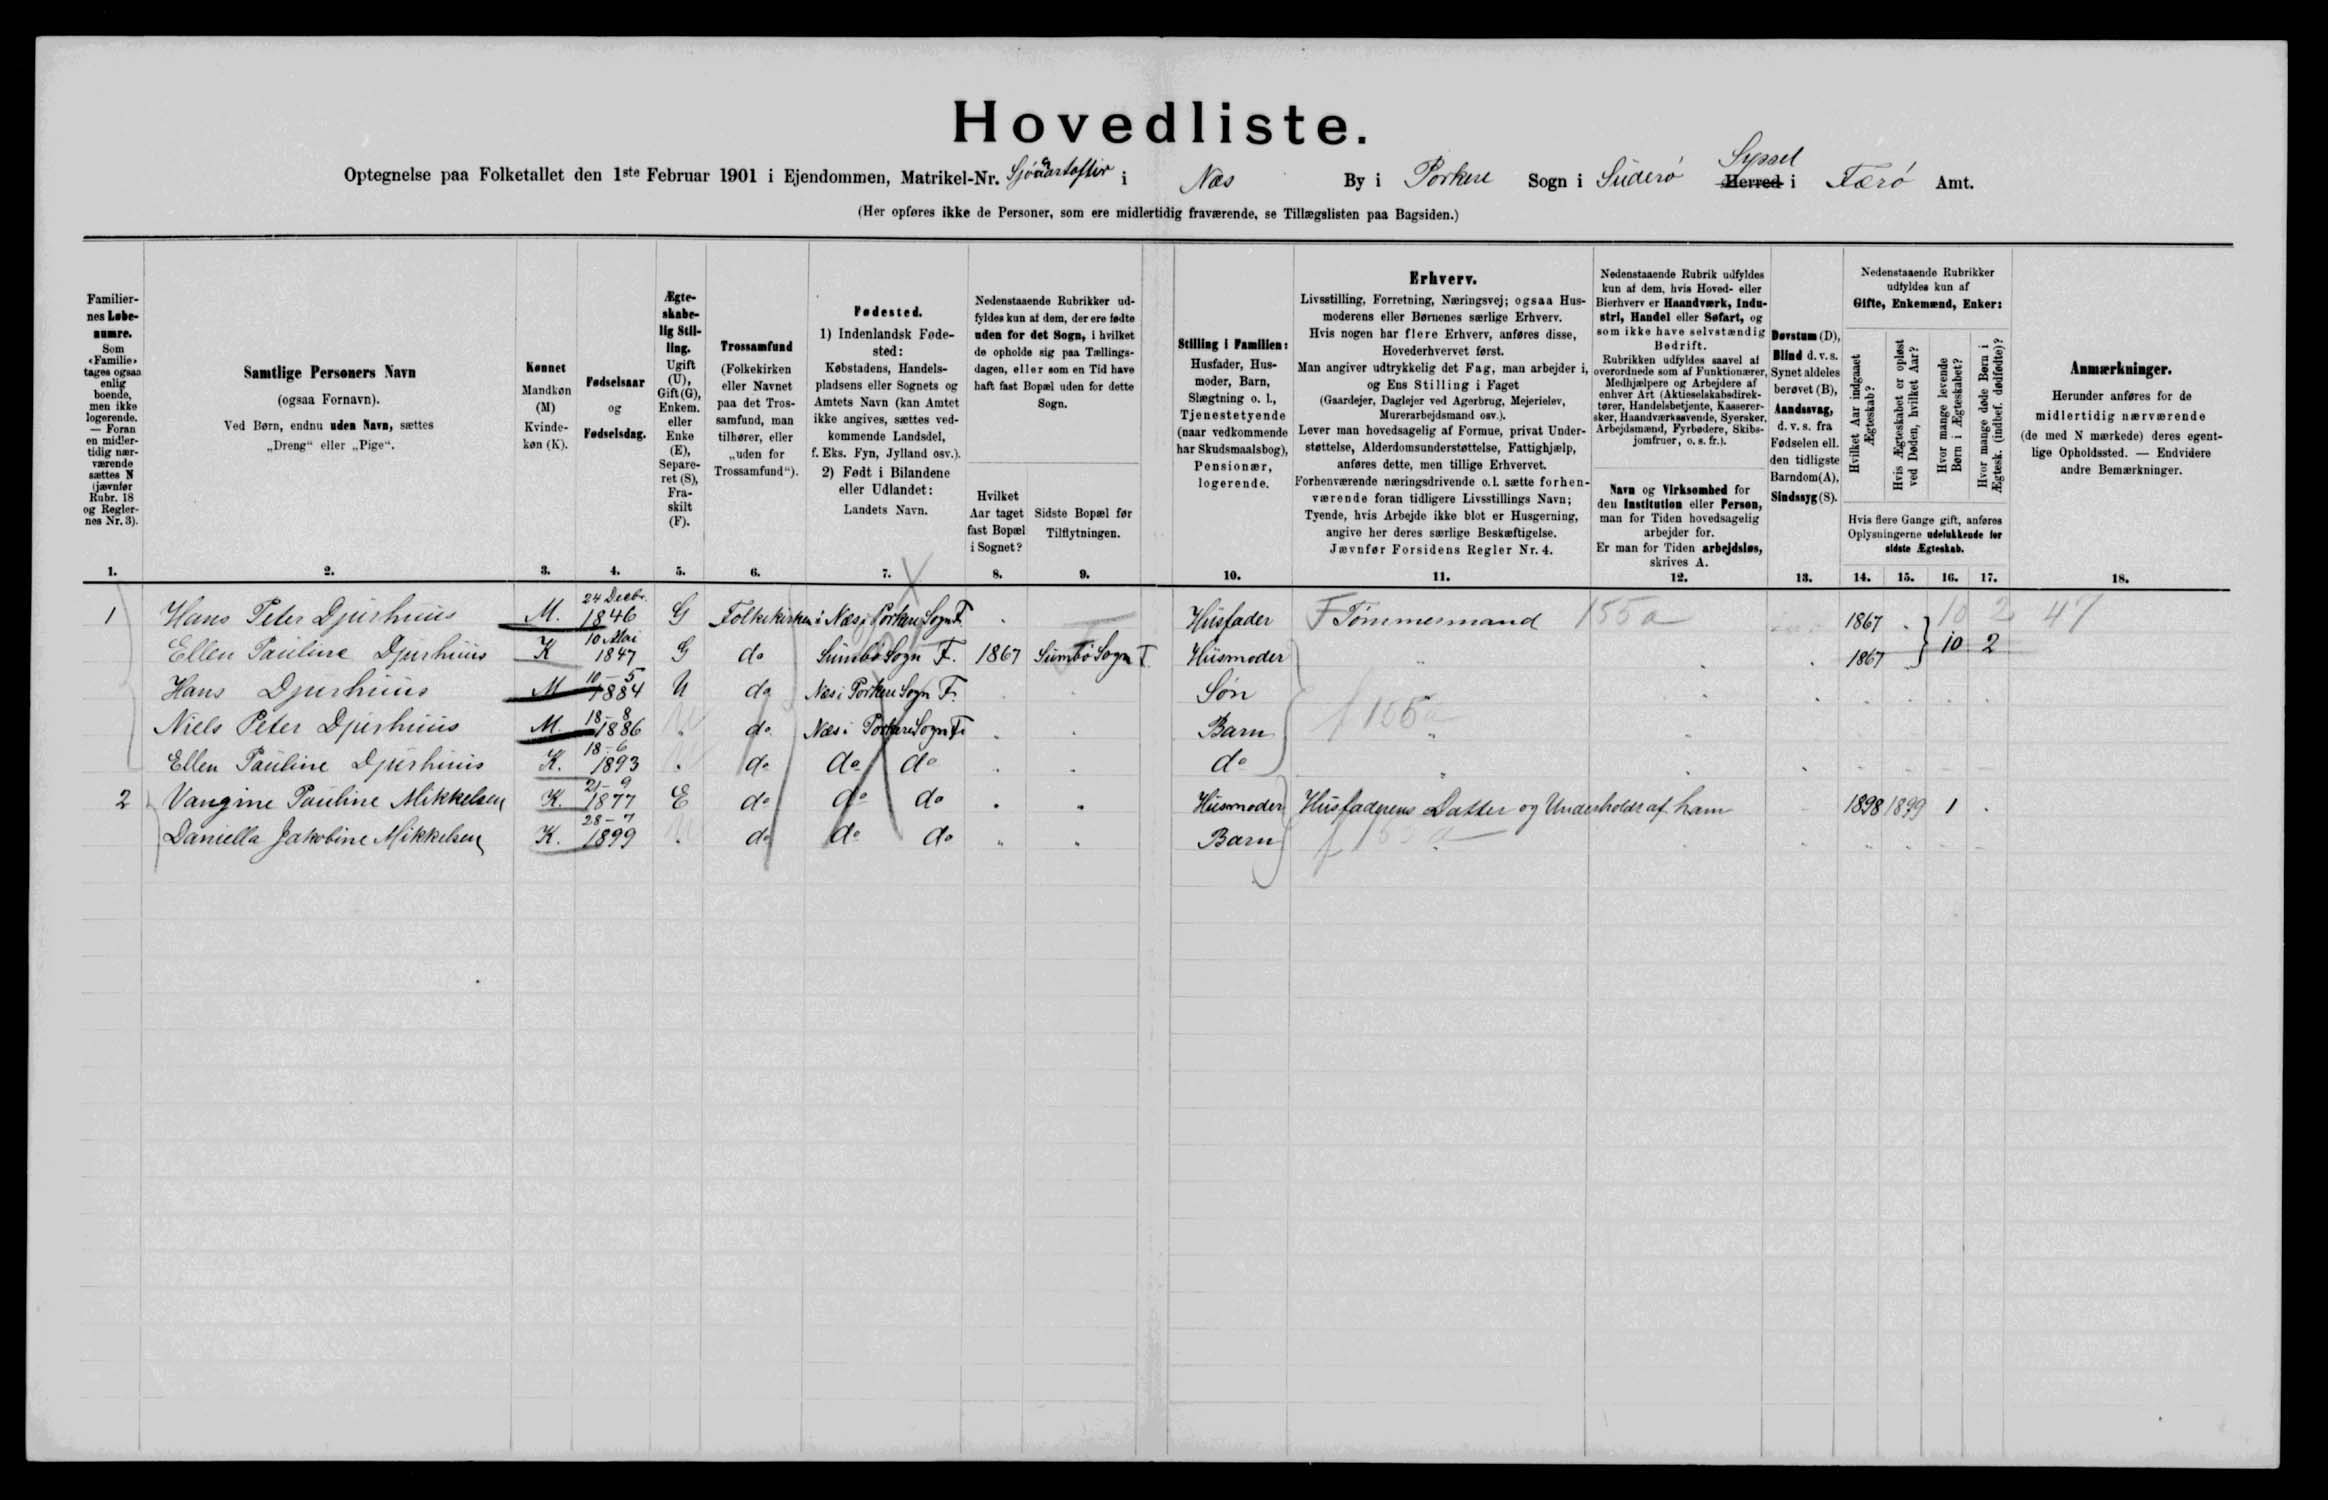 Hovedliste.
Optegnelse paa Folketallet den 1ste Februar 1901 i Ejendommen, Matrikel-Nr. i Næs By i Porkere Sogn i Suderø Syssel Herred i Færø Amt.
(Her opføres ikke de Personer, som ere midlertidig fraværende, se Tillægslisten paa Bagsiden.)
Familiernes Løbenumre.
Som «Familie» tages ogsaa enlig boende, men ikke logerende. — Foran en midlertidig nærværende sættes N (jævnfør Rubr. 18 og Reglernes Nr. 3).
Samtlige Personers Navn
(ogsaa Fornavn).
Ved Børn, endnu uden Navn, sættes
„Dreng“ eller „Pige“.
Kønnet
Mandkøn (M)
Kvindekøn (K).
Fødselsaar
og
Fødselsdag.
Ægteskabelig Stilling.
Ugift (U), Gift (G), Enkem. eller Enke (E), Separeret (S), Fraskilt (F).
Trossamfund
(Folkekirken eller Navnet paa det Trossamfund, man tilhører, eller „uden for Trossamfund“).
Fødested.
1) Indenlandsk Fødested:
Købstadens, Handelspladsens eller Sognets og Amtets Navn (kan Amtet ikke angives, sættes vedkommende Landsdel, f. Eks. Fyn, Jylland osv.).
2) Født i Bilandene eller Udlandet:
Landets Navn.
Nedenstaaende Rubrikker udfyldes kun af dem, der ere fødte uden for det Sogn, i hvilket de opholde sig paa Tællingsdagen, eller som en Tid have haft fast Bopæl uden for dette Sogn.
Hvilket Aar taget fast Bopæl i Sognet?
Sidste Bopæl før Tilflytningen.
Stilling i Familien:
Husfader, Husmoder, Barn, Slægtning o. l., Tjenestetyende (naar vedkommende har Skudsmaalsbog), Pensionær, logerende.
Erhverv.
Livsstilling, Forretning, Næringsvej; ogsaa Husmoderens eller Børnenes særlige Erhverv.
Hvis nogen har flere Erhverv, anføres disse, Hovederhvervet først.
Man angiver udtrykkelig det Fag, man arbejder i, og Ens Stilling i Faget
(Gaardejer, Daglejer ved Agerbrug, Mejerielev, Murerarbejdsmand osv.).
Lever man hovedsagelig af Formue, privat Understøttelse, Alderdomsunderstøttelse, Fattighjælp, anføres dette, men tillige Erhvervet.
Forhenværende næringsdrivende o. l. sætte forhenværende foran tidligere Livsstillings Navn;
Tyende, hvis Arbejde ikke blot er Husgerning, angive her deres særlige Beskæftigelse.
Jævnfør Forsidens Regler Nr. 4.
Nedenstaaende Rubrik udfyldes kun af dem, hvis Hoved- eller Bierhverv er Haandværk, Industri, Handel eller Søfart, og som ikke have selvstændig Bedrift.
Rubrikken udfyldes saavel af overordnede som af Funktionærer, Medhjælpere og Arbejdere af enhver Art (Aktieselskabsdirektører, Handelsbetjente, Kasserersker, Haandværkssvende, Syersker, Arbejdsmænd, Fyrbødere, Skibsjomfruer, o. s. fr.).
Navn og Virksomhed for den Institution eller Person, man for Tiden hovedsagelig arbejder for.
Er man for Tiden arbejdsløs, skrives A.
Døvstum (D), Blind d. v. s. Synet aldeles berøvet (B), Aandssvag, d. v. s. fra Fødselen ell. den tidligste Barndom (A), Sindssyg (S).
Nedenstaaende Rubrikker udfyldes kun af
Gifte, Enkemænd, Enker:
Hvilket Aar indgaaet Ægteskab?
Hvis Ægteskabet er opløst ved Døden, hvilket Aar?
Hvor mange levende Børn i Ægteskabet?
Hvor mange døde Børn i Ægtesk. (indbef. dødfødte)?
Hvis flere Gange gift, anføres Oplysningerne udelukkende for sidste Ægteskab.
Anmærkninger.
Herunder anføres for de midlertidig nærværende (de med N mærkede) deres egentlige Opholdssted. — Endvidere andre Bemærkninger.
1. 2. 3. 4. 5. 6. 7. 8. 9. 10. 11. 12. 13. 14. 15. 16. 17. 18.
1 Hans Peter Djurhuus M. 24 Decbr. 1846 G Folkekirken i Næs i Porkere Sogn F. Husfader F Tømmermand 155 a 1867 10 2 47
Ellen Pauline Djurhuus K 10 Mai 1847 G do Sumbø Sogn F. 1867 Sumbø Sogn F. Husmoder 1867 10 2
Hans Djurhuus M 10-5 1884 U do Næs i Porkere Sogn F. Søn
Niels Peter Djurhuus M. 18-8 1886 do Næs i Porkere Sogn F. Barn f 155 a
Ellen Pauline Djurhuus K. 18-6 1893 do do do do
2 Vangine Pauline Mikkelsen K. 21-9 1877 E do do do Husmoder Husfaderens Datter og Underholdt af ham 1898 1899 1
Daniella Jakobine Mikkelsen K. 28-7 1899 do do do Barn